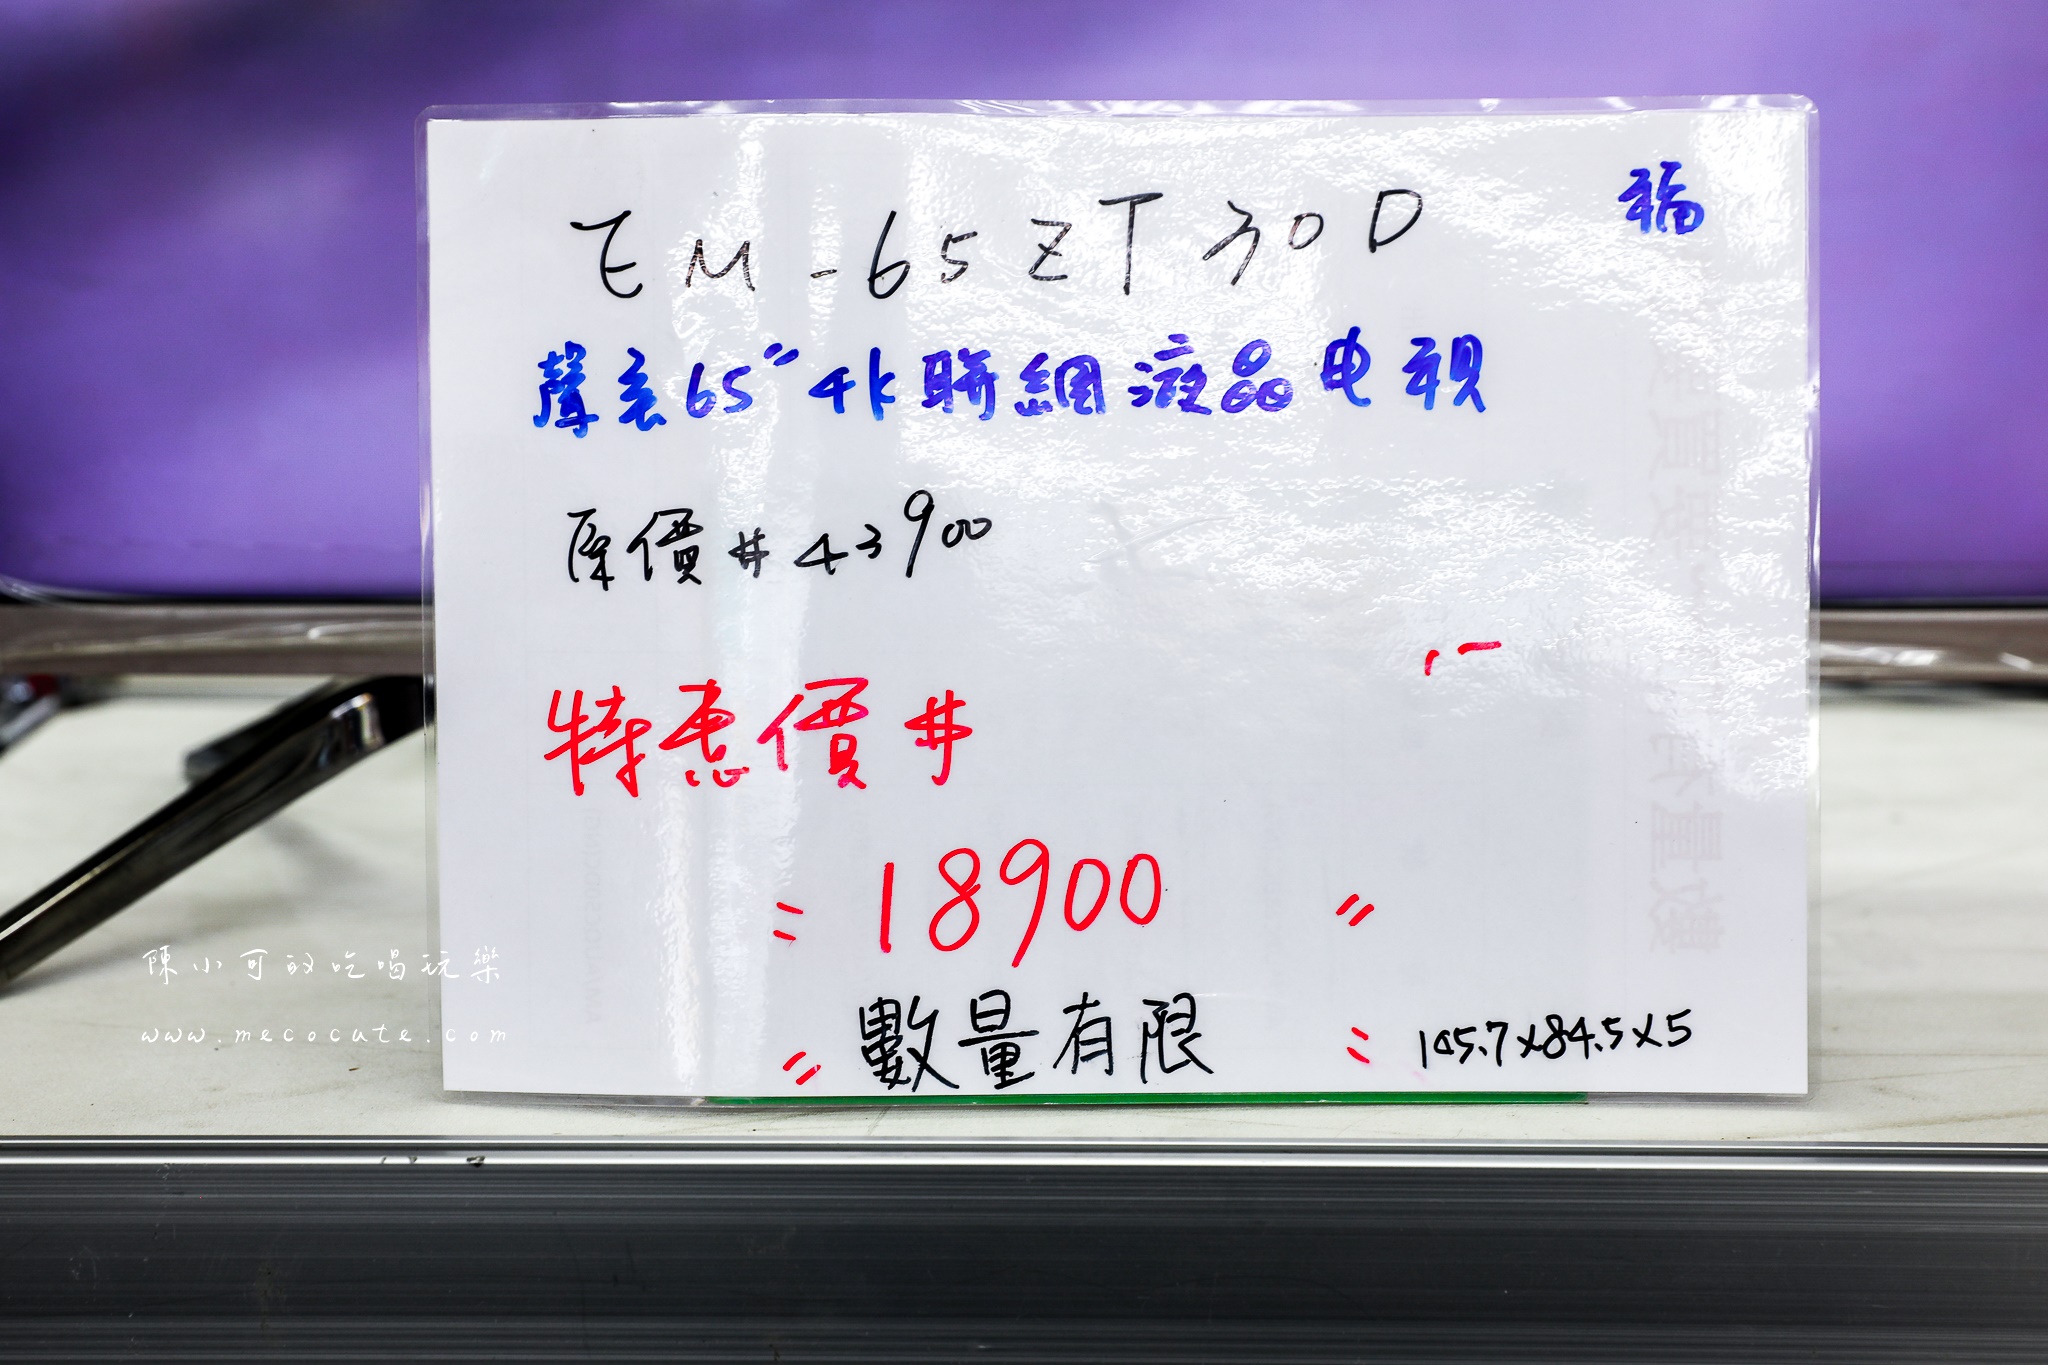 福
EM-65ZT30D
聲宝65"4K聯網液晶电視
原價#43900
特惠價#
18900
數量有限
145.7x84.5x5
陳小可的吃喝玩樂
www.mecocute.com